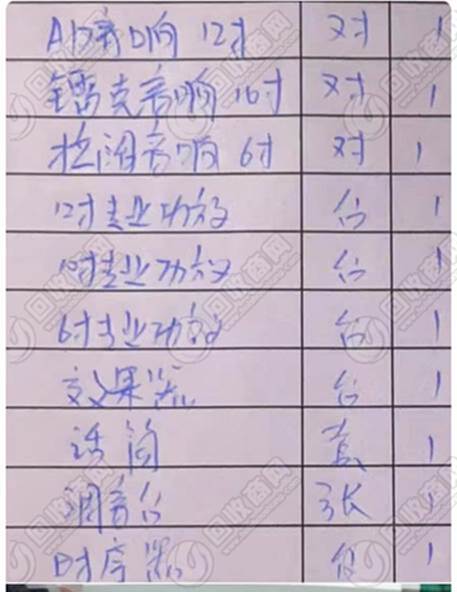 AD音响 12寸 对 1
镭克音响 10寸 对 1
音响 6寸 对 1
12寸专业功放 台 1
10寸专业功放 台 1
6寸专业功放 台 1
效果器 台 1
话筒 套 1
调音台 张 1
时序器 台 1
回收商网